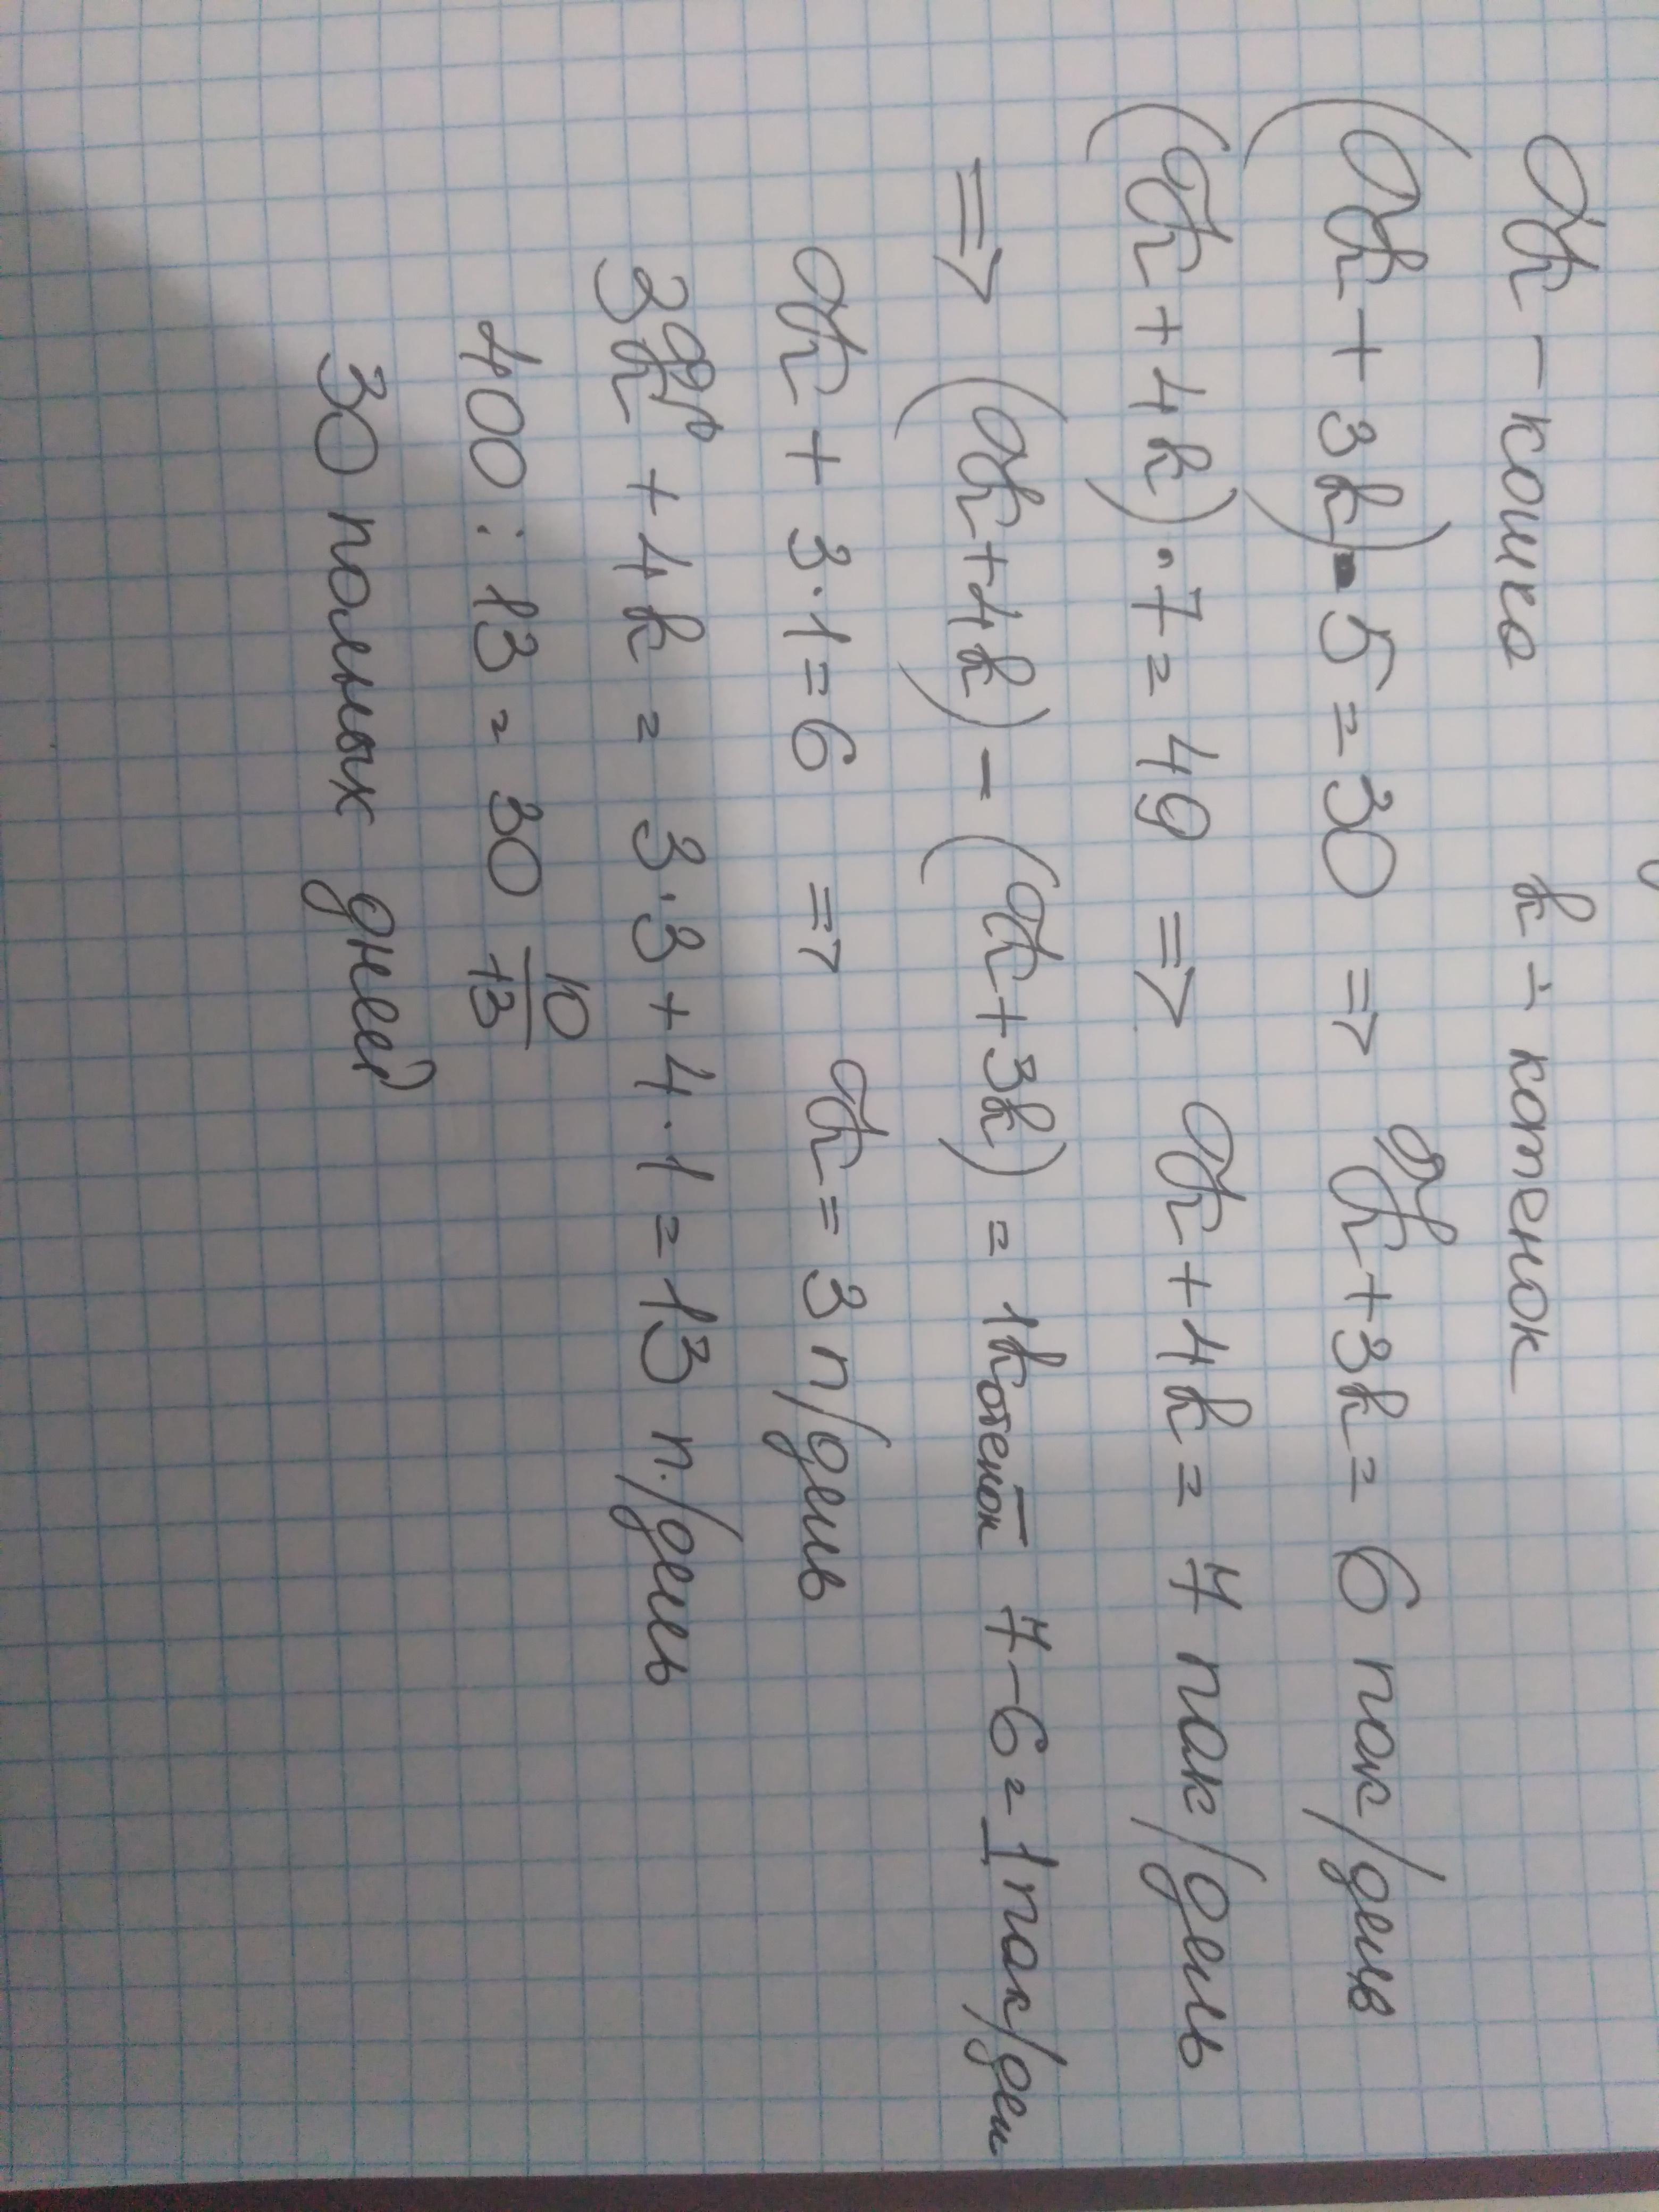 Ж - кошка k - котенок
(Ж + 3k) · 5 = 30 => Ж + 3k = 6 пак/день
(Ж + 4k) · 7 = 49 => Ж + 4k = 7 пак/день
=> (Ж + 4k) - (Ж + 3k) = 1 котенок 7 - 6 = 1 пак/ден
Ж + 3 · 1 = 6 => Ж = 3 п/день
3Ж + 4k = 3 · 3 + 4 · 1 = 13 п./день
400 : 13 = 30 10/13
30 полных дней